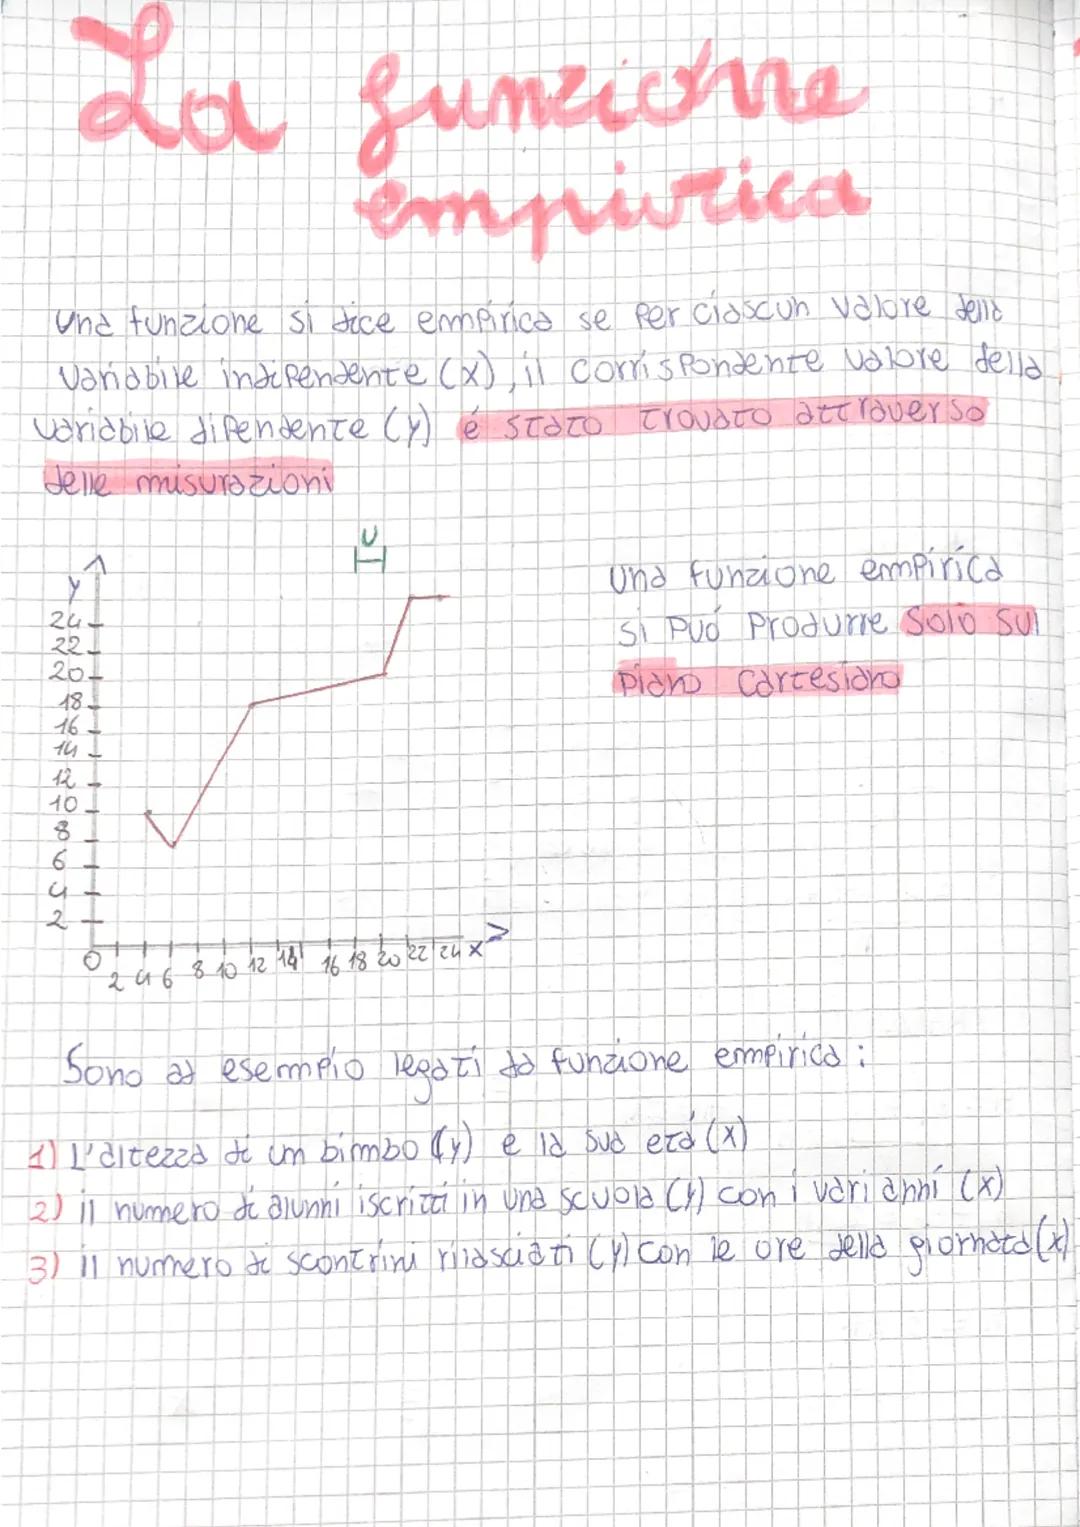 La funzione
empirica
Una funzione si dice empirica se per ciascun valore della
variabile indipendente (x), il corrispondente valore della
variabile dipendente (y) é stato trovato attraverso
delle misurazioni
U
y
24
22
20
18
16
14
12
10
8
6
4
2
0 2 4 6 8 10 12 14 16 18 20 22 24 x
Una funzione empirica
si puó produrre solo sul
piano cartesiano
Sono ad esempio legati da funzione empirica:
1) L'altezza di un bimbo (y) e la sua etá (x)
2) il numero di alunni iscritti in una scuola (y) con i vari anni (x)
3) il numero di scontrini rilasciati (y) con le ore della giornata (x)